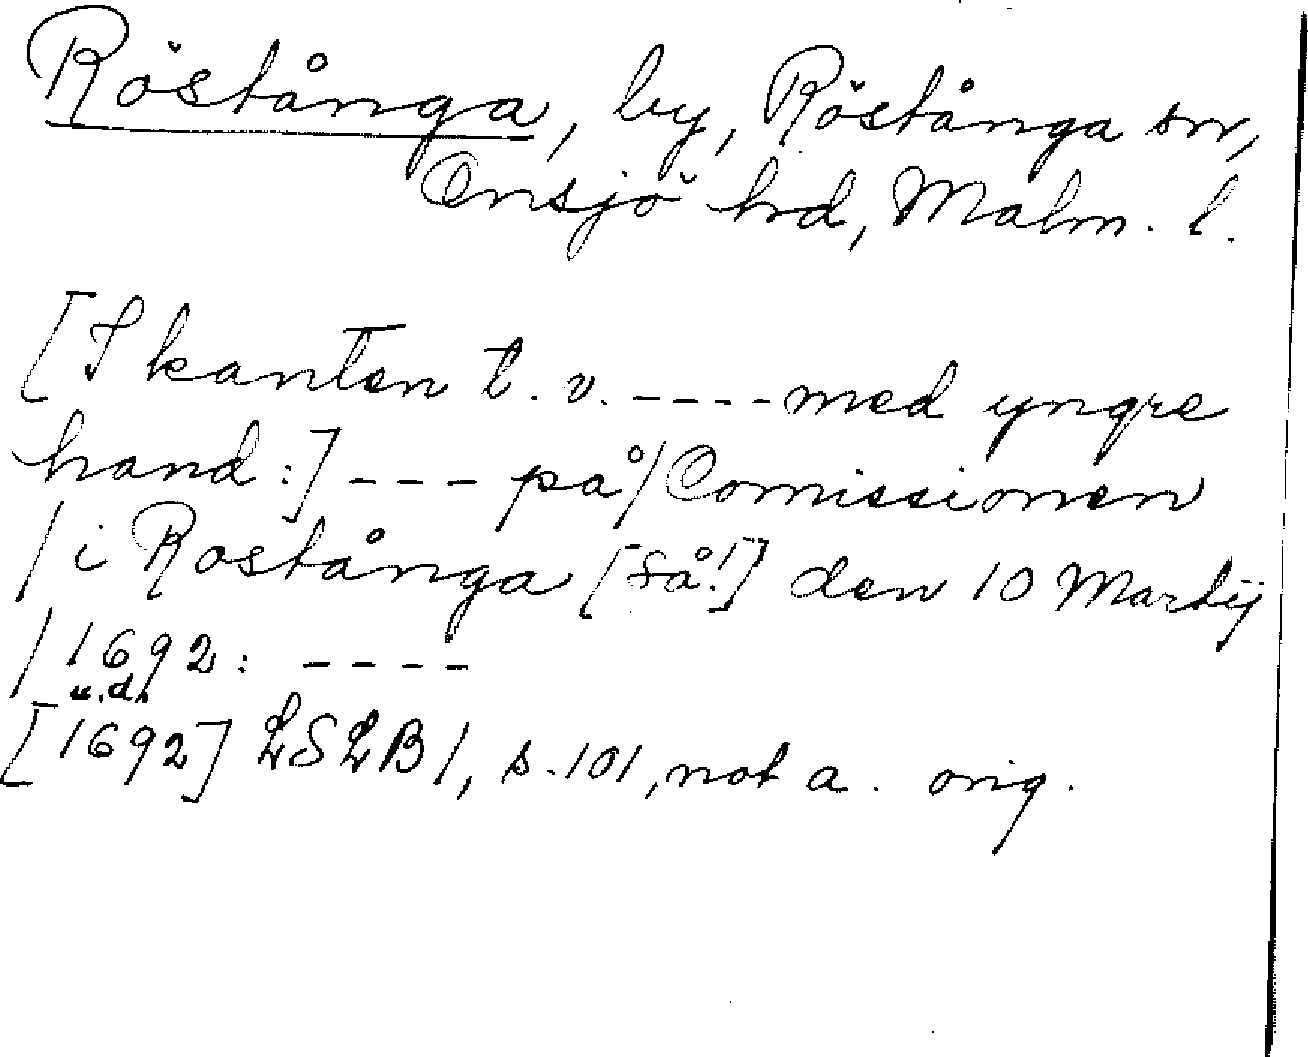 Röstånga, by, Röstånga sn,
Onsjö hd, Malm. l.
[I kanten t. v. ---- med yngre
hand:] --- på/Comissionen
/i Rostånga [så!] den 10 Martij
/1692: ----
u.d.
[1692] LSLB 1, s. 101, not a. orig.